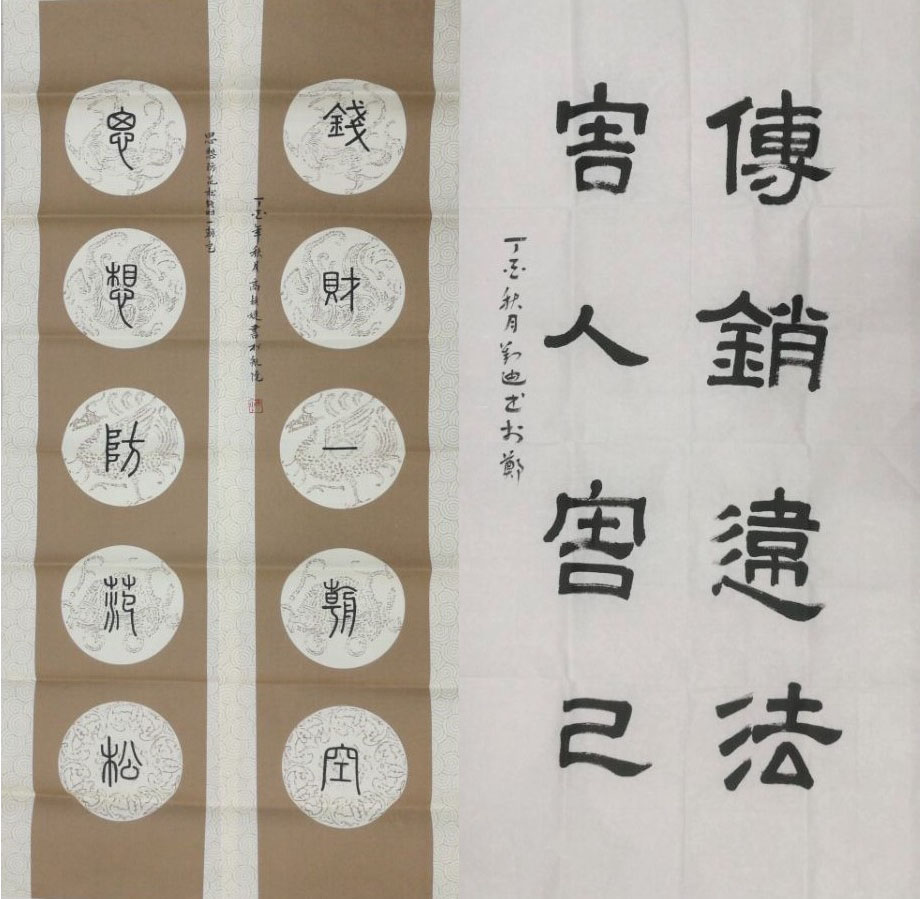 思想防范松
錢財一朝空
思想防范松錢財一朝空
丁酉年秋月高
傳銷違法
害人害己
丁酉秋月劉迪书於鄭